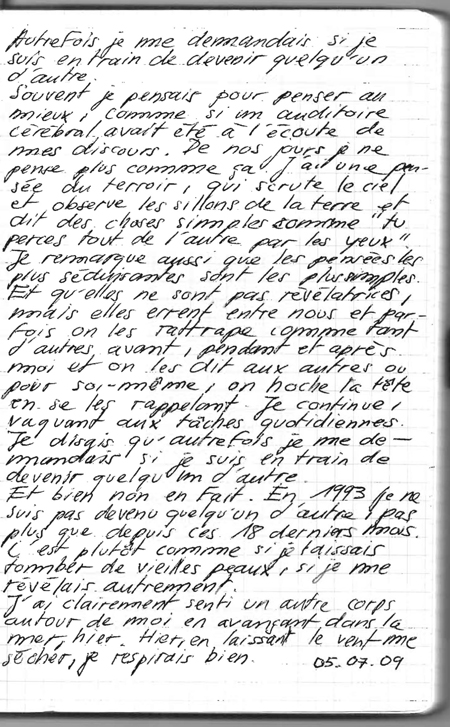 Autrefois je me demandais si je
suis en train de devenir quelqu'un
d'autre.
Souvent je pensais pour penser au
mieux, comme si un auditoire
cérébral avait été à l'écoute de
mes discours. De nos jours je ne
pense plus comme ça. J'ai une pen-
sée du terroir, qui scrute le ciel
et observe les sillons de la terre et
dit des choses simples comme "tu
perces tout de l'autre par les yeux".
Je remarque aussi que les pensées les
plus séduisantes sont les plus simples.
Et qu'elles ne sont pas révélatrices,
mais elles errent entre nous et par-
fois on les rattrape comme tant
d'autres avant, pendant et après
moi et on les dit aux autres ou
pour soi-même, on hoche la tête
en se les rappelant. Je continue,
vaquant aux tâches quotidiennes.
Je disais qu'autrefois je me de-
mandais si je suis en train de
devenir quelqu'un d'autre.
Et bien non en fait. En 1993 je ne
suis pas devenu quelqu'un d'autre, pas
plus que depuis ces 18 derniers mois.
C'est plutôt comme si je laissais
tomber de vieilles peaux, si je me
révélais autrement.
J'ai clairement senti un autre corps
autour de moi en avançant dans la
mer, hier. Hier, en laissant le vent me
sécher, je respirais bien. 05.07.09